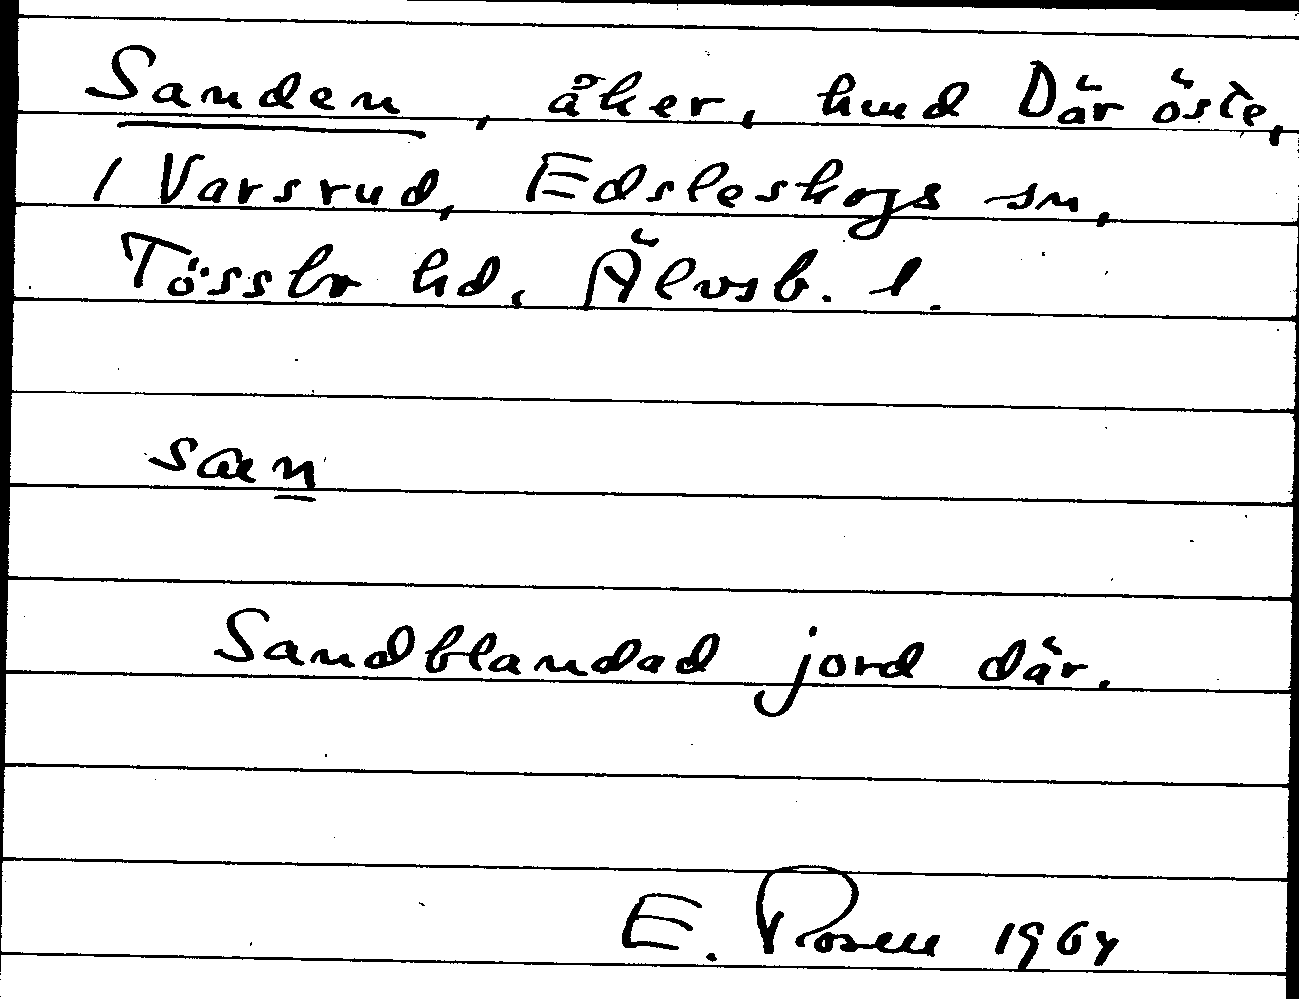 Sanden, åker, hmd Där öste,
1 Varsrud, Edsleskogs sn,
Tössbo hd, Älvsb. l.
san
Sandblandad jord där.
E. Rosen 1964